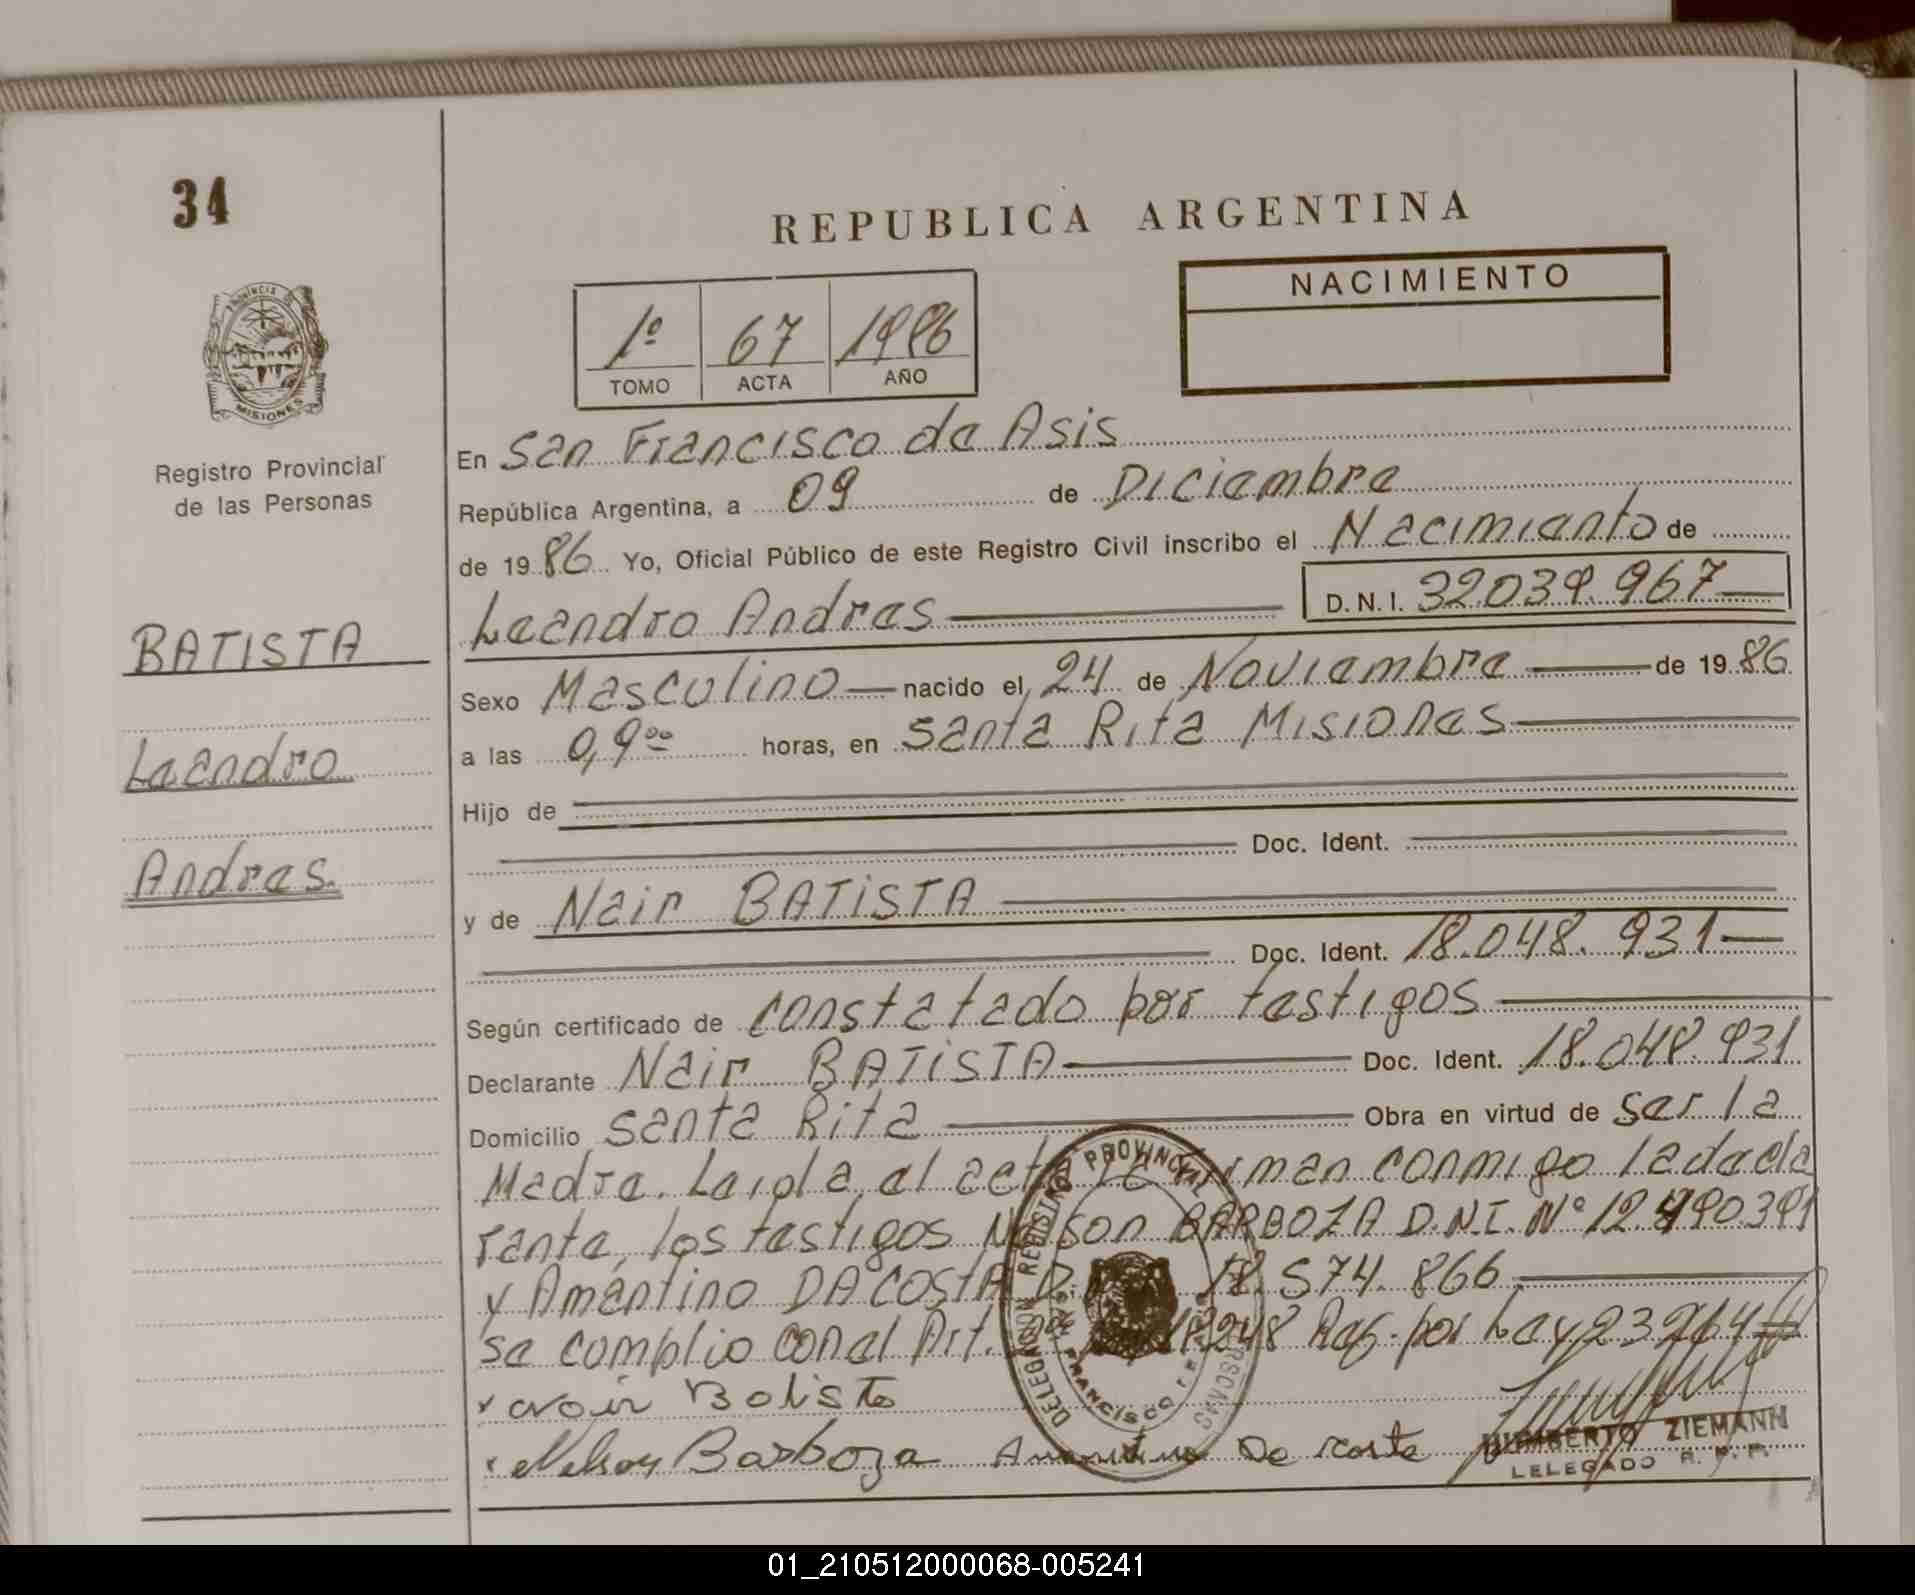 34
REPUBLICA ARGENTINA
NACIMIENTO
1º 67 1986
TOMO ACTA AÑO
MISIONES
Registro Provincial
de las Personas
En San Francisco de Asis
República Argentina, a 09 de Diciembre
de 19 86 Yo, Oficial Público de este Registro Civil inscribo el Nacimiento de
Leandro Andres D.N.I. 32.039.967
BATISTA
Leandro
Andres.
Sexo Masculino nacido el 24 de Noviembre de 19 86
a las 0,9ºº horas, en Santa Rita Misiones
Hijo de
Doc. Ident.
y de Nair BATISTA
Doc. Ident. 18.048.931
Según certificado de constatado por testigos
Declarante Nair BATISTA Doc. Ident. 18.048.931
Domicilio Santa Rita Obra en virtud de ser la
Madre. Leida el acta firman conmigo la decla
rante, los testigos Nelson BARBOZA D.N.I. Nº 12.
y Amantino DA COSTA 18.574.866
se complio con el Art. 18248 por Ley 23264
Nair Batista
Nelson Barboza Amantino Da Costa
HUMBERTO ZIEMANN
DELEGADO R. P. P.
DELEGACION REGISTRO PROVINCIAL PERSONAS
FRANCISCO
01_210512000068-005241